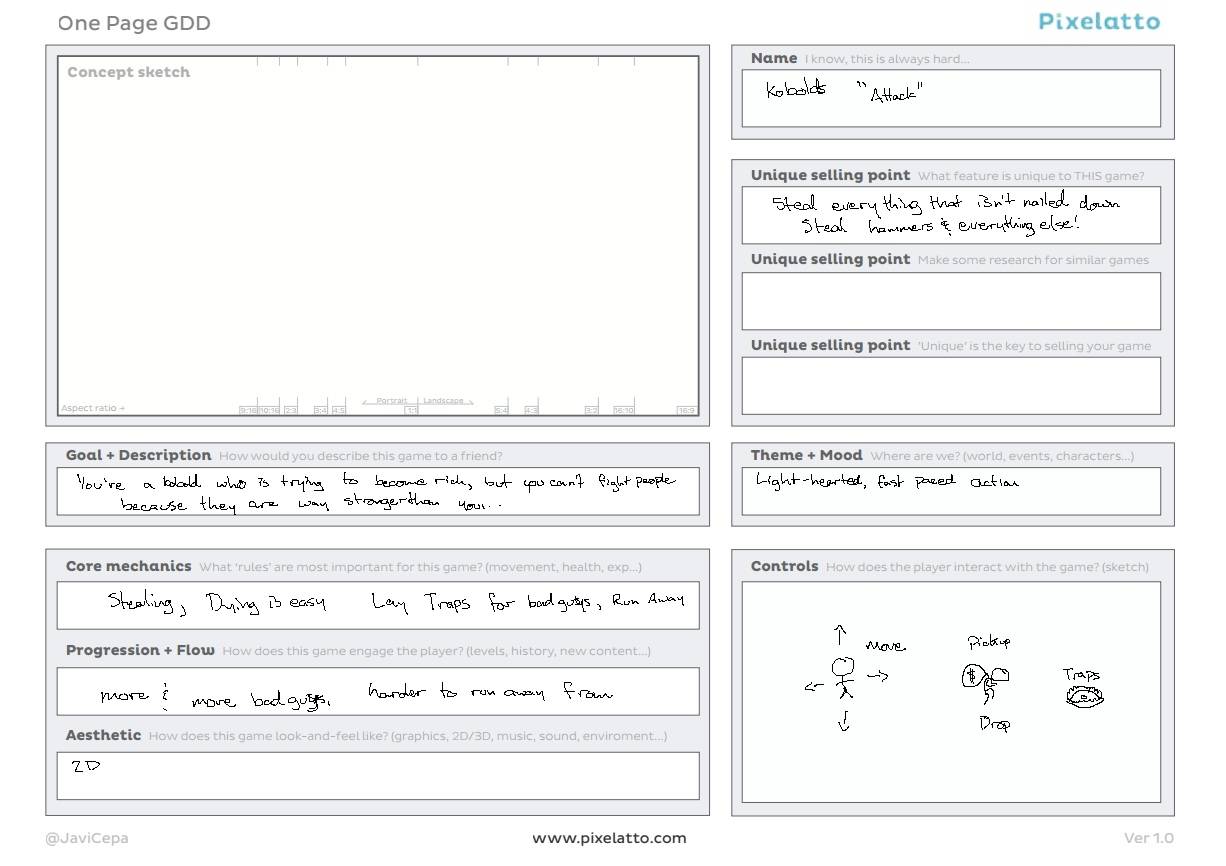 One Page GDD
Pixelatto
Concept sketch
Aspect ratio →
9:16 10:16 2:3 3:4 4:5 Portrait 1:1 Landscape 5:4 4:3 3:2 16:10 16:9
Name I know, this is always hard...
Kobolds "Attack"
Unique selling point What feature is unique to THIS game?
Steal everything that isn't nailed down
Steal hammers & everything else!
Unique selling point Make some research for similar games
Unique selling point 'Unique' is the key to selling your game
Goal + Description How would you describe this game to a friend?
You're a kobold who is trying to become rich, but you can't fight people
because they are way stronger than you...
Theme + Mood Where are we? (world, events, characters...)
Light-hearted, fast paced action
Core mechanics What 'rules' are most important for this game? (movement, health, exp...)
Stealing, Dying is easy Lay Traps for badguys, Run Away
Progression + Flow How does this game engage the player? (levels, history, new content...)
more & more badguys. harder to run away from
Aesthetic How does this game look-and-feel like? (graphics, 2D/3D, music, sound, enviroment...)
2D
Controls How does the player interact with the game? (sketch)
move
Pickup
$
Drop
Traps
@JaviCepa
www.pixelatto.com
Ver 1.0